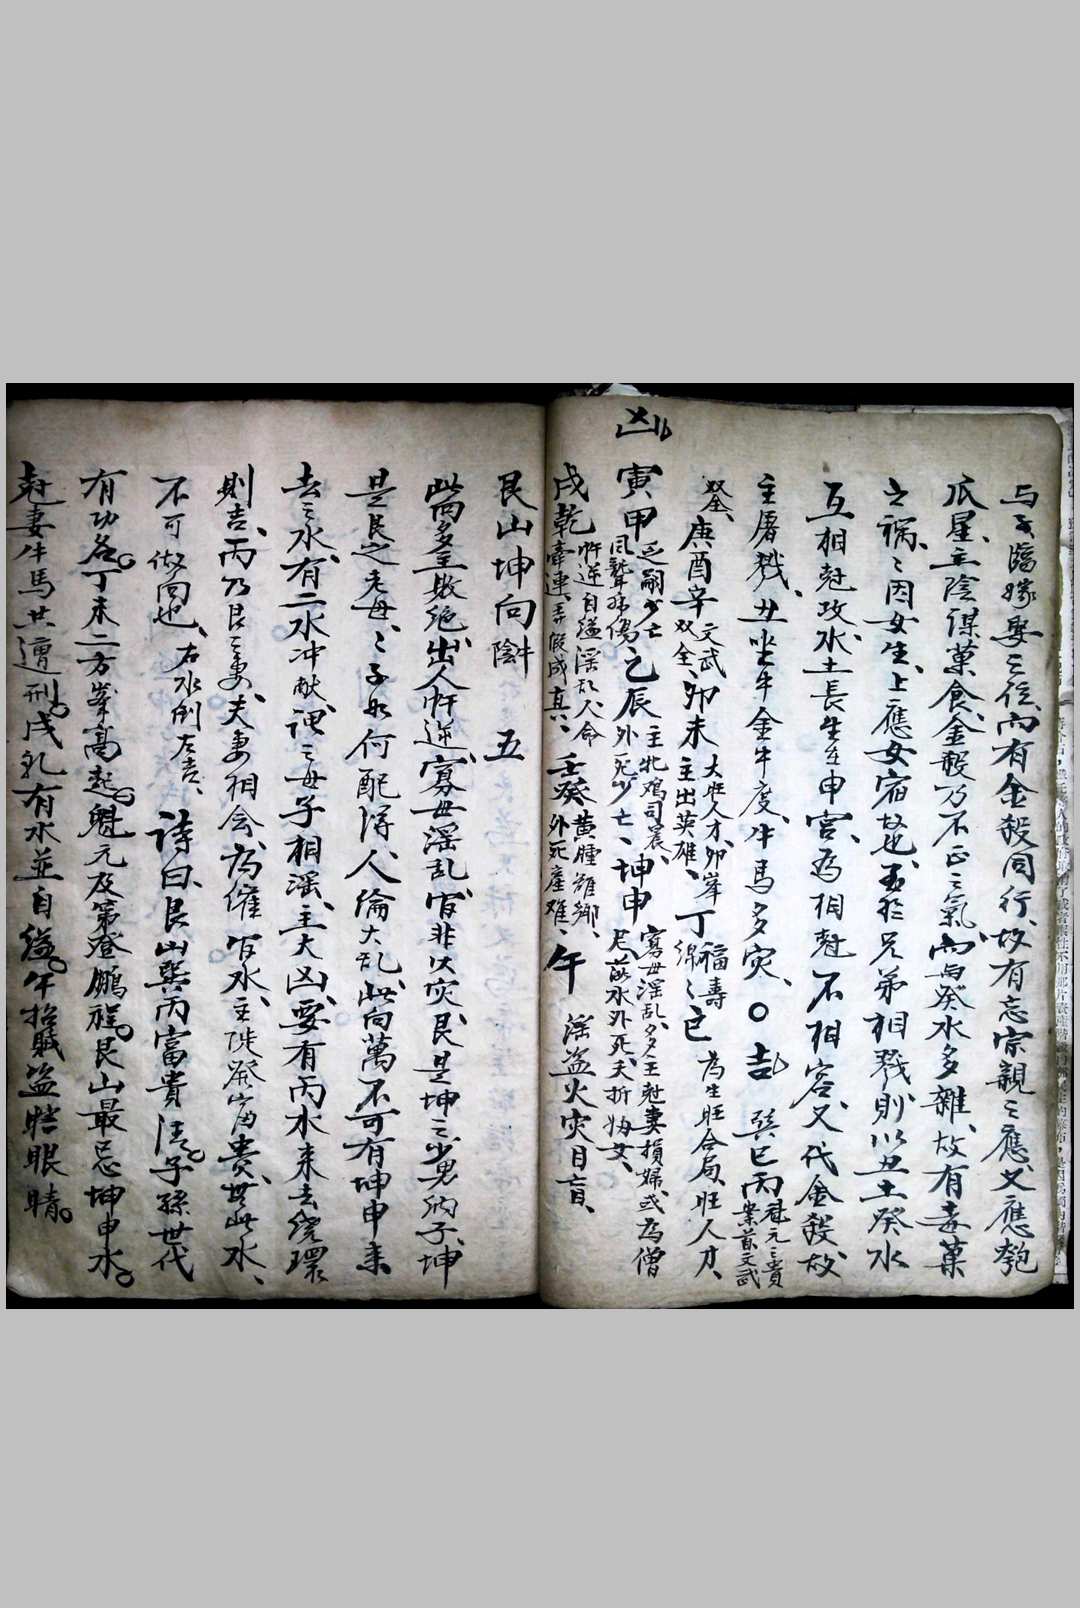 与女臨嫁娶之位、而有金殺同行、故有忘宗親之應、又應匏
瓜星、主陰謀菓食、金殺乃不正之氣、而與癸水多雜、故有毒菓
之禍、〻因女生、上應女宿故也、至於兄弟相戮、則以丑土癸水
互相尅攻、水土長生在申宮、為相尅不相容、又代金殺、故
主屠戮、丑坐牛金牛度、牛馬多灾、○吉 巽巳丙 魁元之貴 案首文武
双全、庚酉辛 文武双全、卯未 大旺人才、卯峯主出英雄、丁 福壽綿〻 巳 為生旺合局、旺人才、
凶 寅甲 乏嗣少亡 風聾殘傷 乙辰 主牝鸡司晨、外死少亡、坤申 寡母淫乱、多主尅妻損婦、或為僧尼 水外死、夭折 女、
戌乾 忤逆自縊淫乱人命牽連、弄假成真、壬癸 黄腫離鄉、外死產难、午 淫盗火灾目盲、
艮山坤向陰 五
此向多主敗絶、出人忤逆、寡母淫乱、官非火灾、艮是坤之少男納子、坤
是艮之老母、〻子如何配得、人倫大乱、此向萬不可有坤申来
去之水、有二水冲献、謂之母子相淫、主大凶、要有丙水来去繞環
則吉、丙乃艮之妻、夫妻相会、為催官水、主陡發富貴、無此水、
不可做向也、右水倒左吉、詩曰、艮山巽丙富貴清。子孫世代
有功名。丁未二方峯高起。魁元及第登鵬程。艮山最忌坤申水。
尅妻牛馬共遭刑。戌乾有水並自縊。午招賊盗瞎眼睛。